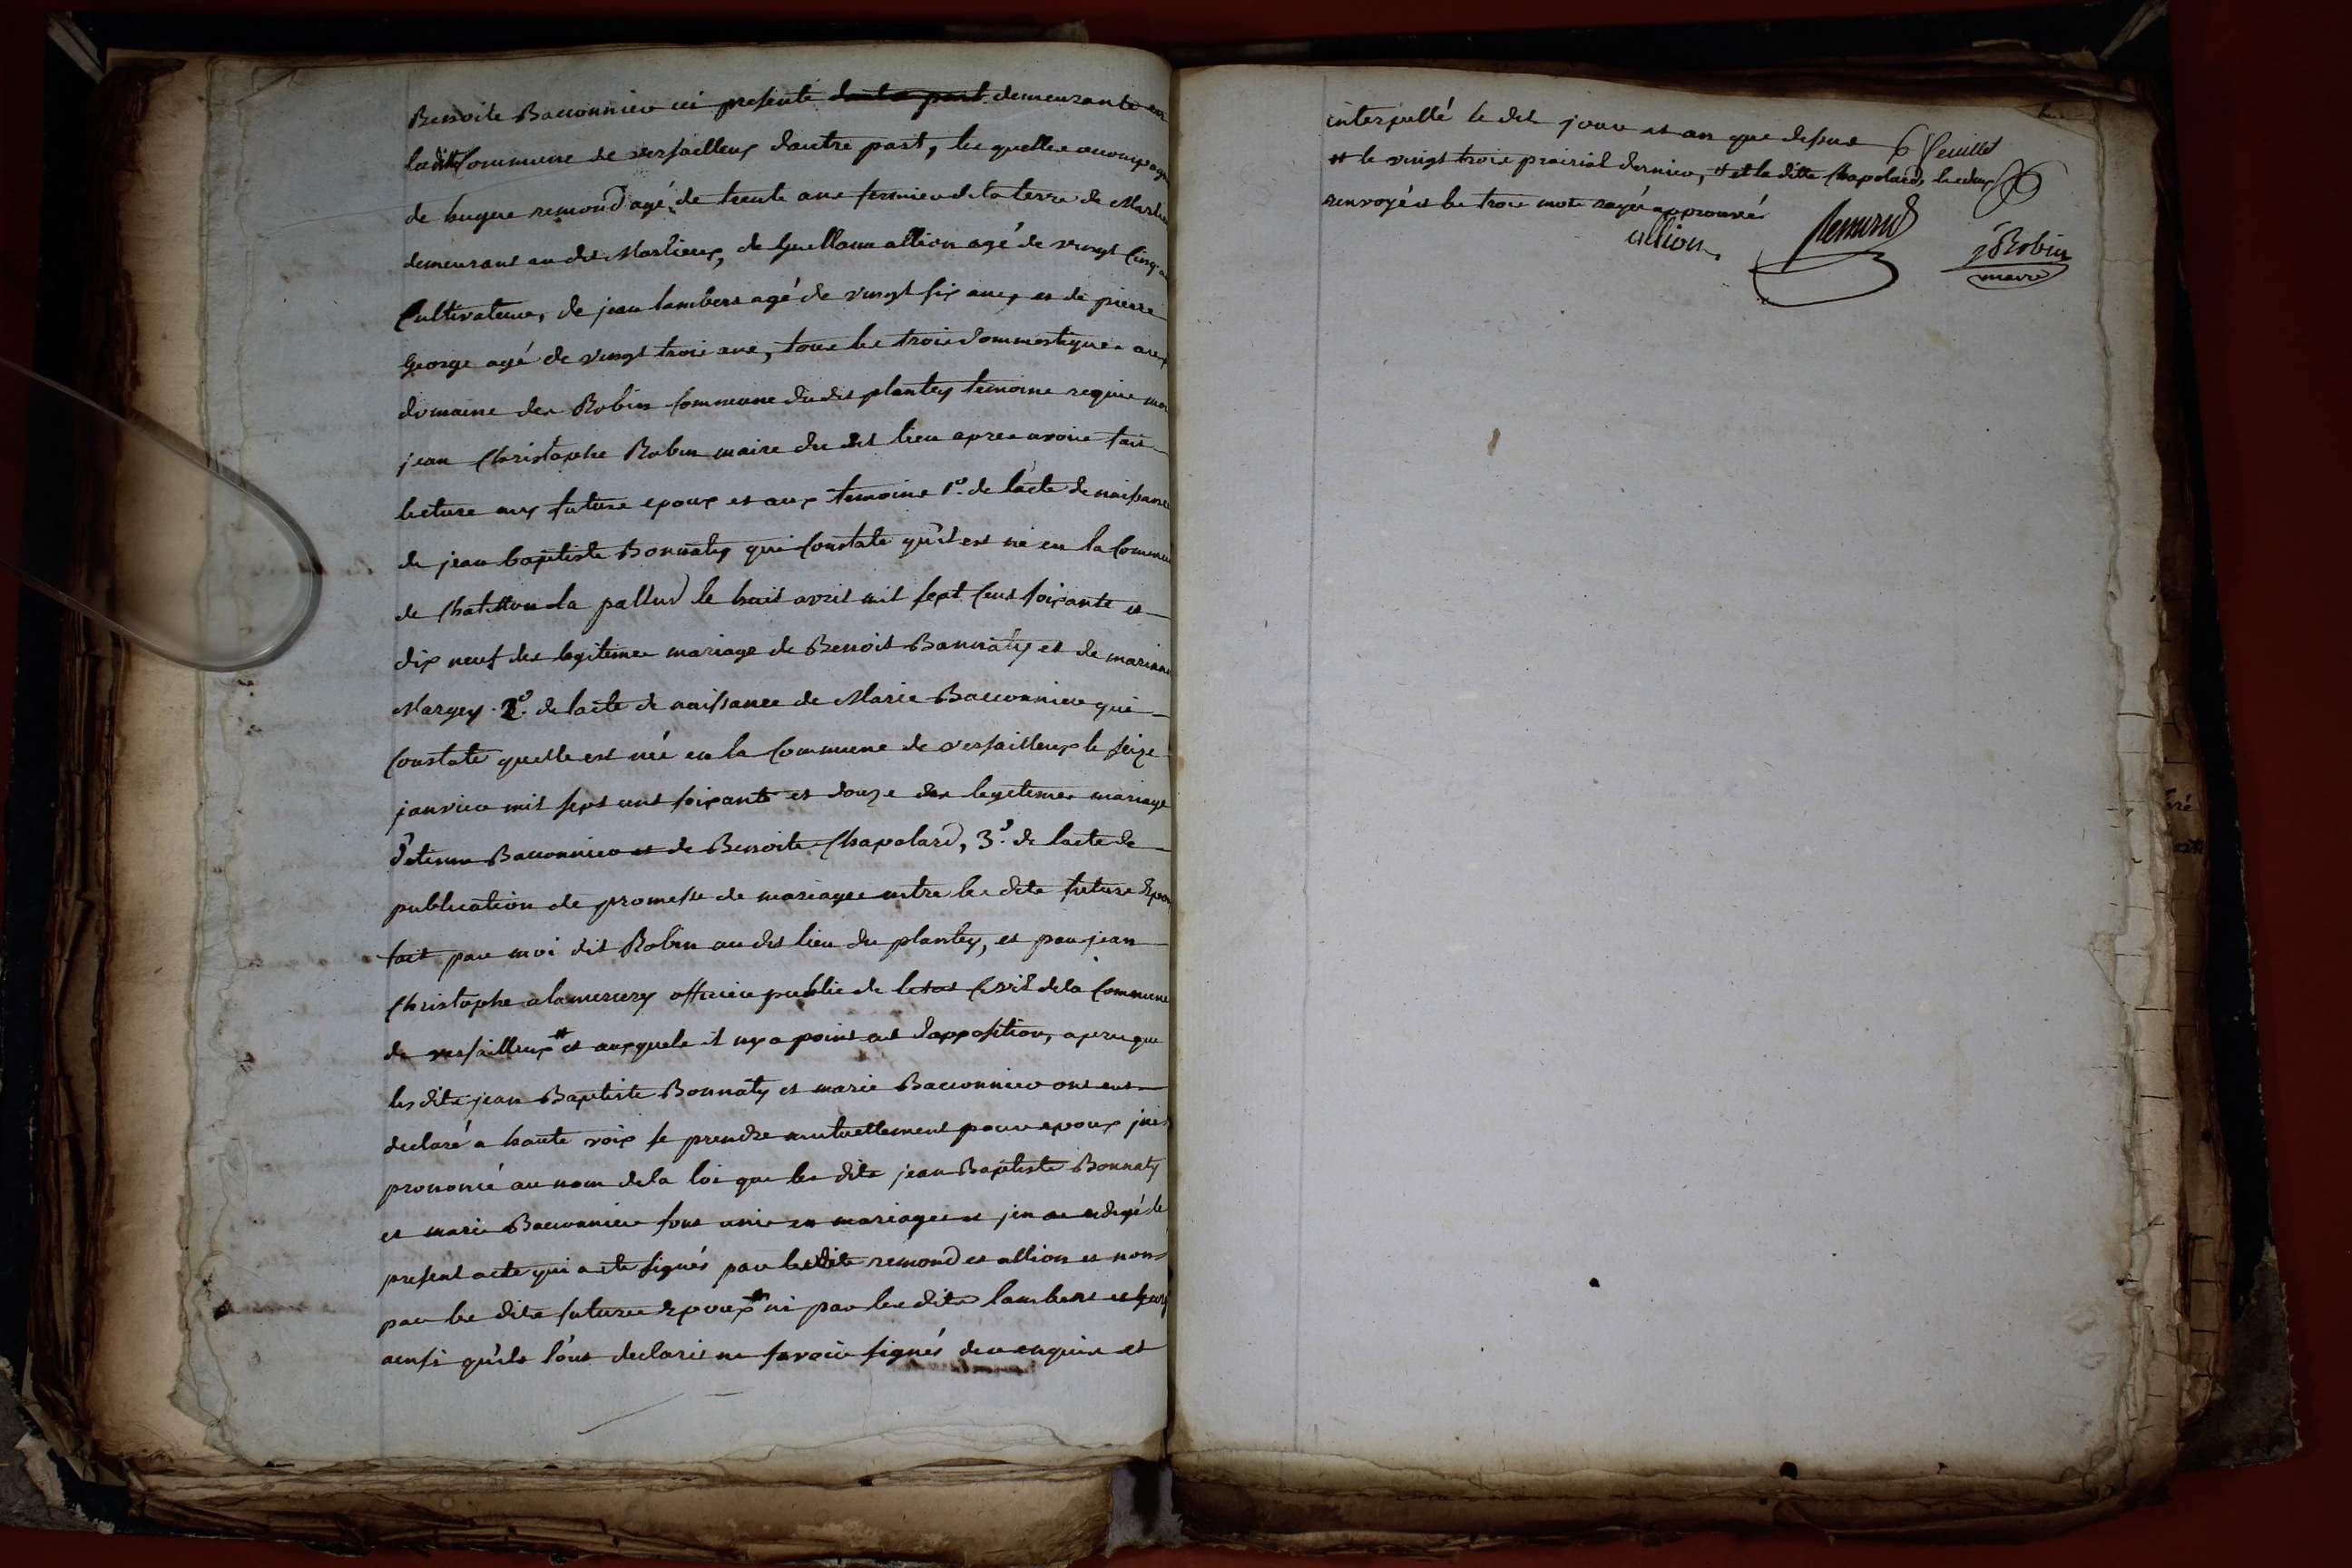 Benoite Baconnier ici presente d'autre part demeurante en
la ditte Commune de versailleux d'autre part, les quelles accompagn
de hugue remond agé de trente ans fermier de la terre de Marlieu
demeurant au dit Marlieux, de Guillaume allion agé de vingt Cinq a
Cultivateur, de jean lambert agé de vingt six ans, et de pierre
George agé de vingt trois ans, tous les trois dommestiques aux
domaine des Robin Commune du dit plantey temoins requis moi
jean Christophe Robin maire du dit lieu apres avoir fait
lecture aux futurs epoux et aux temoins 1º. de l'acte de naissance
de jean baptiste Bonnaty qui Constate qu'il est né en la Commune
de Chatillon la pallud le huit avril mil sept Cent soixante et
dix neuf des legitimes mariage de Benoit Bonnaty et de marianne
Margey. 2º. de lacte de naissance de Marie Baconnier qui
Constate quelle est née en la Commune de versailleux le seize
janvier mil sept cent soixante et douze des legitimes mariage
d'etienne Baconnier et de Benoite Chapolard, 3º. de lacte de
publication de promesse de mariages entre les dits futurs Epoux
fait par moi dit Robin au dit lieu du plantey, et par jean
Christophe alamercery officier public de letat Civil de la Commune
de versailleux # et auxquels il ny a point eut dopposition, apres que
les dits jean Baptiste Bonnaty et marie Baconnier ont eut
declaré a haute voix se prendre mutuellement pour epoux j'ai
prononcé au nom de la loi que les dits jean Baptiste Bonnaty
et marie Baconnier sont unis en mariages et jen ai redigé le
present acte qui a eté signés par les dits remond et allion et non
par les dits futurs Epoux # ni par les dits lambert et george
ainsi qu'ils l'ont declarés ne savoir signés de ce enquis et
interpellé le dit jour et an que dessus 6 feuillet
# le vingt trois prairial dernier, # et la ditte Chapolard, les deux
renvoyés et les trois mots rayés approuvés
allion
Remond
j Robin
maire